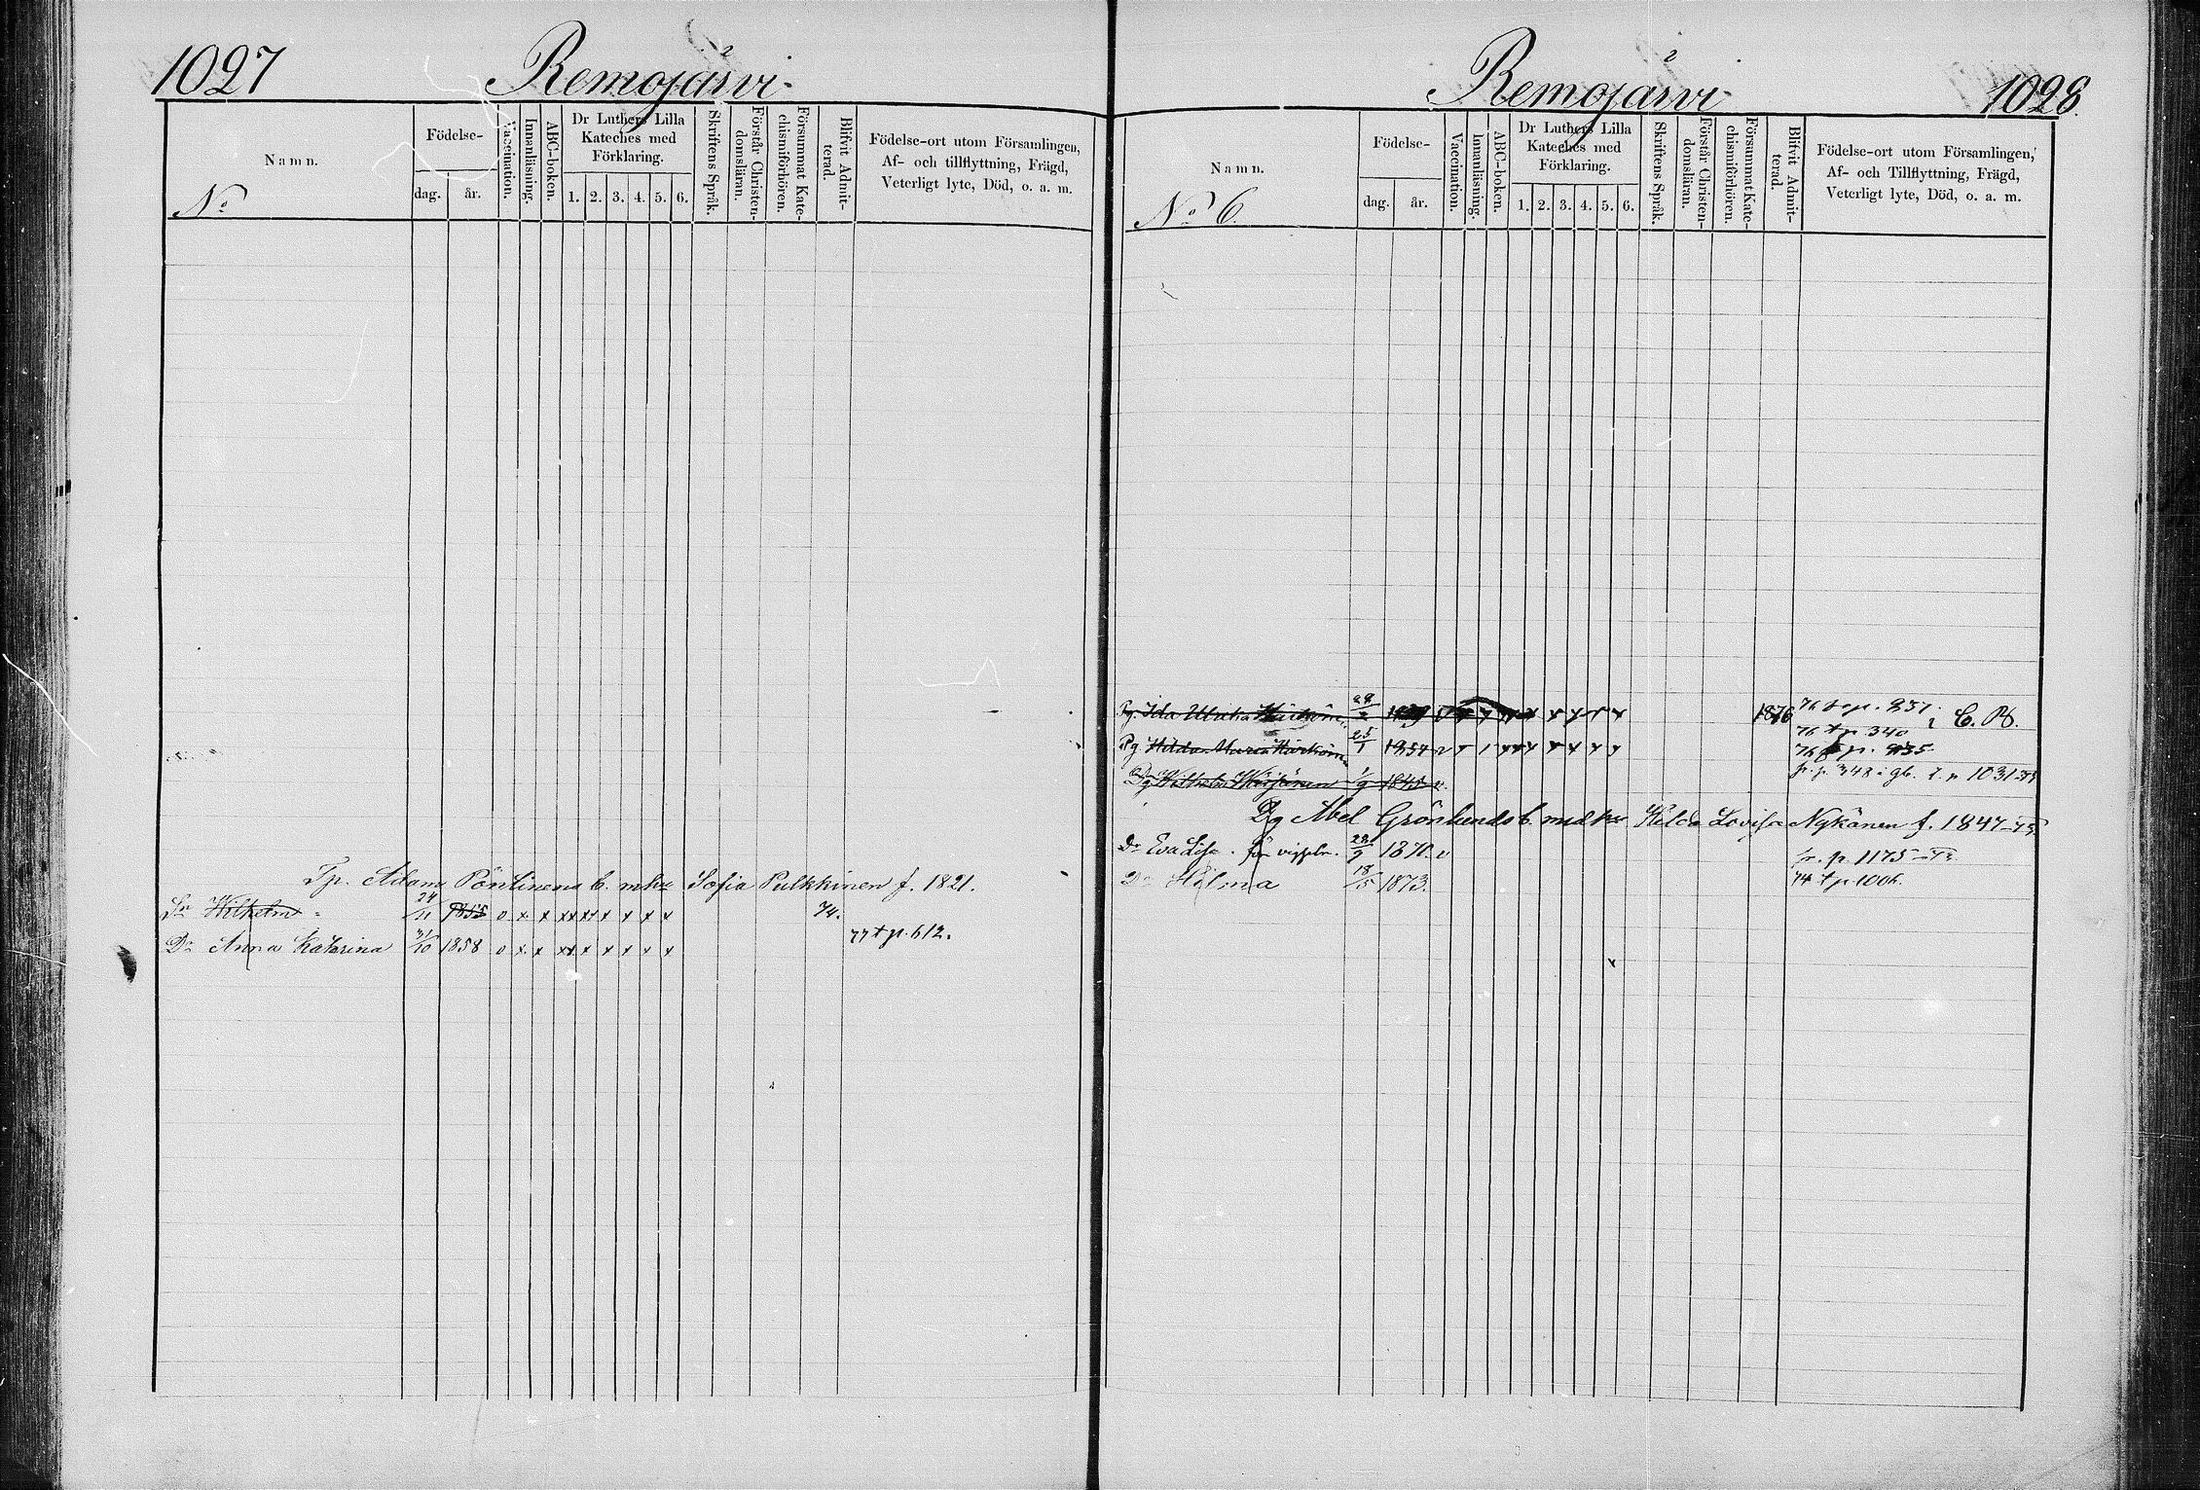 1027 Remojärvi
Namn.
No
Födelse-
dag. år.
Vaccination.
Innanläsning.
ABC-boken.
Dr Luthers Lilla
Kateches med
Förklaring.
1. 2. 3. 4. 5. 6.
Skriftens Språk.
Förstår Christen-
domsläran.
Försummat Kate-
chismiförhören.
Blifvit Admit-
terad.
Födelse-ort utom Församlingen,
Af- och tillflyttning, Frägd,
Veterligt lyte, Död, o. a. m.
Tp. Adam Pöntinens b. m hu Sofia Pulkkinen f. 1821.
Sn Wilhelm 24/11 1855 o x x xx xx x x x x 74.
77 t p. 612.
Dr Anna Katarina 31/10 1858 o x x xx x x x x x
Remojärvi 1028.
Namn.
No 6.
Födelse-
dag. år.
Vaccination.
Innanläsning.
ABC-boken.
Dr Luthers Lilla
Kateches med
Förklaring.
1. 2. 3. 4. 5. 6.
Skriftens Språk.
Förstår Christen-
domsläran.
Försummat Kate-
chismiförhören.
Blifvit Admit-
terad.
Födelse-ort utom Församlingen,
Af- och Tillflyttning, Frägd,
Veterligt lyte, Död, o. a. m.
Pg. Ida Ulrika 1876 76 p. 851.
76 t p 340
Pg Hilda Maria 25/1 1854 76 p. 935
Wilhelm 1/9 1848 fr. p. 348 i gb. t. p 1031
Dg Abel Grönlunds b. med hu Hilda Lovisa Nykänen f. 1847
Dr Eva Lisa. 22/9 1870 fr. p. 1175
Dr Hilma 18/5 1873. 74 t p 1006.